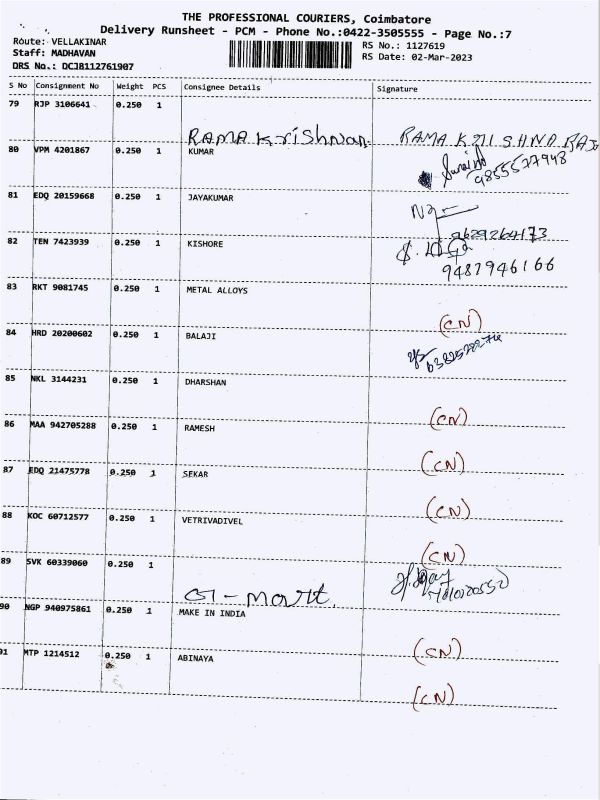 THE PROFESSIONAL COURIERS, Coimbatore
Delivery Runsheet - PCM - Phone No.:0422-3505555 - Page No.:7
Route: VELLAKINAR
Staff: MADHAVAN
DRS No.: DCJB112761907
RS No.: 1127619
RS Date: 02-Mar-2023
S No Consignment No Weight PCS Consignee Details Signature
79 RJP 3106641 0.250 1
RAMA Krishnan RAMA KRISHNA RAJ
80 VPM 4201867 0.250 1 KUMAR
9855577948
81 EDQ 20159668 0.250 1 JAYAKUMAR
9629264173
82 TEN 7423939 0.250 1 KISHORE
9487946166
83 RKT 9081745 0.250 1 METAL ALLOYS
(CN)
84 HRD 20200602 0.250 1 BALAJI
85 NKL 3144231 0.250 1 DHARSHAN
(CN)
86 MAA 942705288 0.250 1 RAMESH
(CN)
87 EDQ 21475778 0.250 1 SEKAR
(CN)
88 KOC 60712577 0.250 1 VETRIVADIVEL
(CN)
89 SVK 60339060 0.250 1
G-Mart.
90 NGP 940975861 0.250 1 MAKE IN INDIA
(CN)
91 MTP 1214512 0.250 1 ABINAYA
(CN)